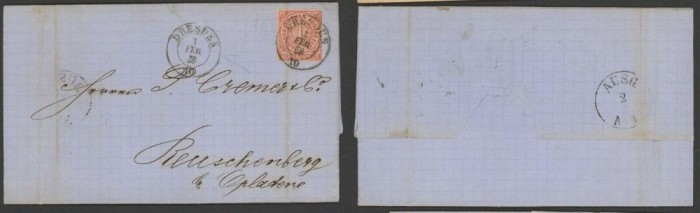 DRESDEN
1
FEB
10
DRESDEN
1
FEB
68
10
Herren P. Cremer & Co.
Reuschenberg
b/ Opladen
AUSG
2